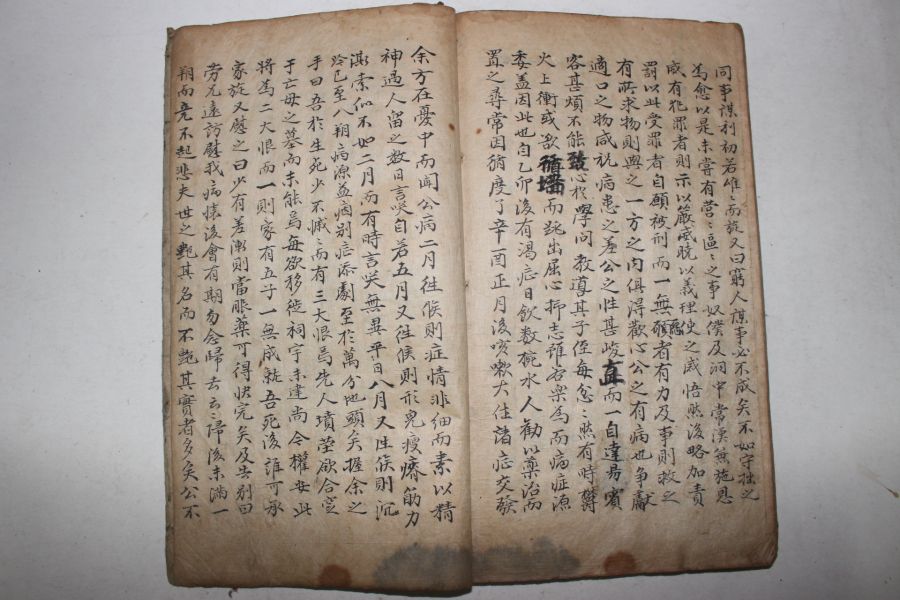 同事謀利初若使之而旋又曰窮人謀事必不成矣不如守拙之
為愈以是未嘗有營營區區之事奴僕及洞中常漢無施恩
威有犯罪者則示以嚴威脫以義理使之感悟然後略加責
罰以此受罪者自顧被刑而一無怨者有力及事則救之
有所求物則與之一方之內俱得歡心公之有病也爭獻
適口之物咸祝病患之差公之性甚峻直而一自達易賓
客甚煩不能致心於學問教導其子侄每忽忽然有時鬱
火上衝或欲循墻而跳出屈心抑志強容樂為而病症源
委盖因此也自乙卯後有渴症日飲數椀水人勸以藥治而
置之尋常因循度了辛酉正月後咳嗽大作諸症交發
余方在憂中而聞公病二月往候則症情非細而素以精
神過人留之數日言笑自若五月又往候則形皃瘦瘠筋力
澌索似不如二月而有時言笑無異平日八月又往候則沉
冷已至八朔病源益痼別症添劇至於萬分地頭矣握余之
手曰吾於生死少不慽慽而有三大恨焉先人墳塋欲合窆
于亡母之墓而未能焉每欲移徙祠宇未達尚今權安此
將為二大恨而一則家有五子一無成就吾死後誰可承
家旋又慰之曰少有差漸則當服藥可得快完矣及告別曰
勞兄遠訪慰我病懷後會有期勿念歸去云云歸後未滿一
朔而竟不起悲夫世之艶其名而不艶其實者多矣公不